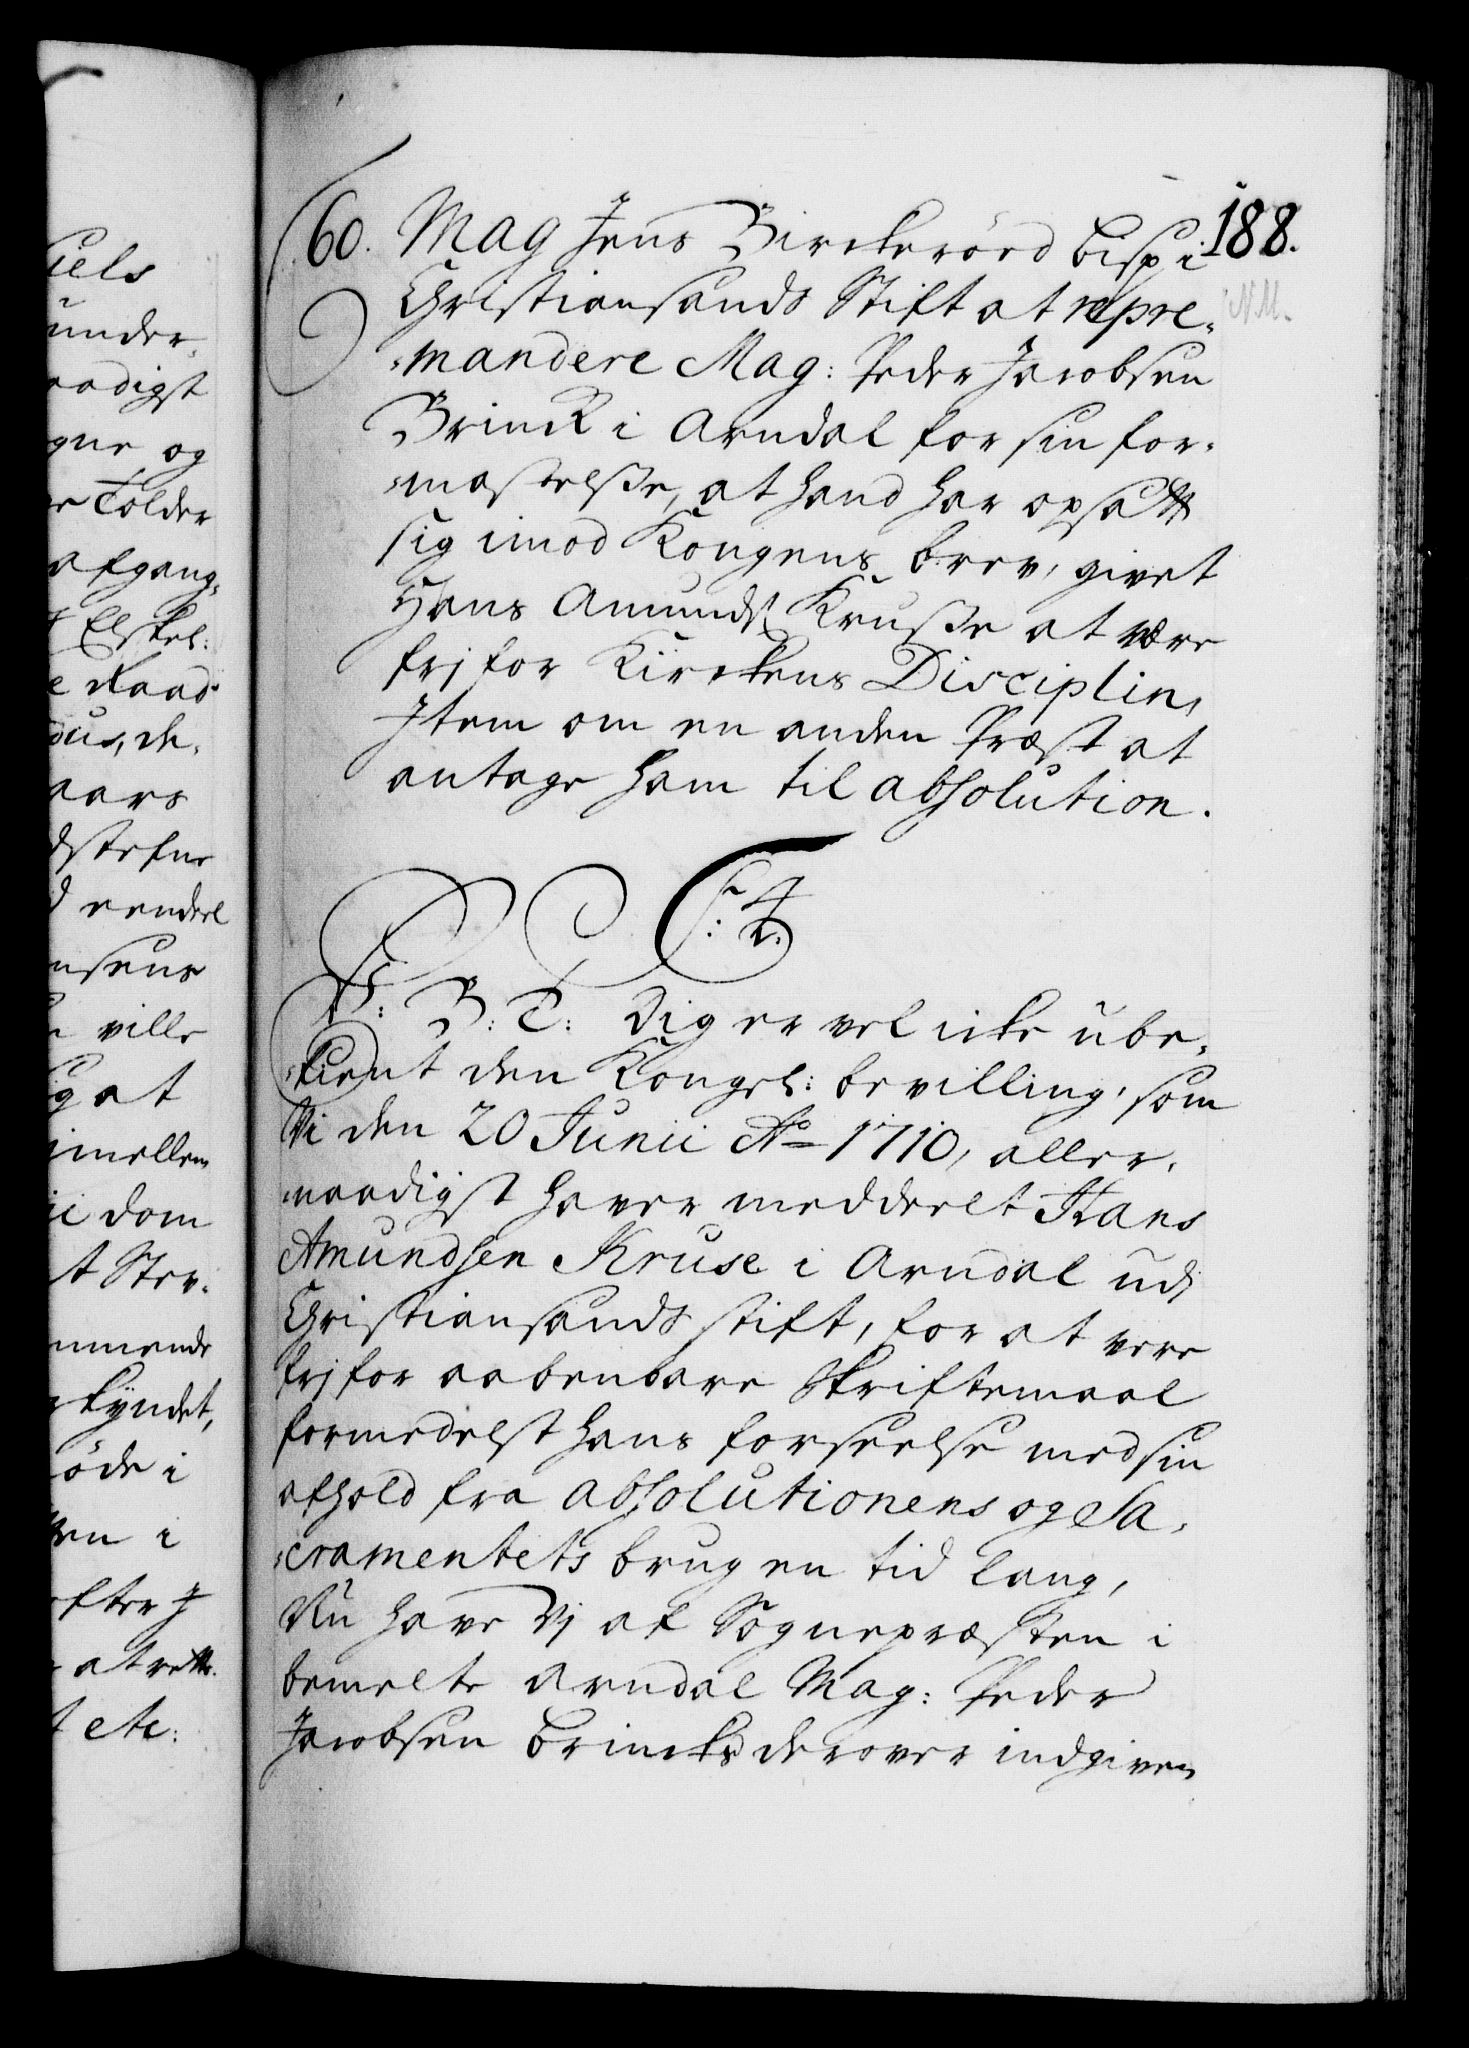 188.
60. Mag Jens Birckeröed bisp i
Christiansands Stift at repre-
-mandere Mag: Peder Jacobsen
Brinck i Arndal for sin for-
-mastelsse, at hand har opsatt
sig imod Kongens brev, givet
Hans Amunds Krusse at være
frj for Kirckens Disciplin,
Item om en anden Præst at
antage ham til absolution.
F: 4.
V: B: T: Dig er vel icke ube-
-kient den Kongel: bevilling, som
Vi den 20 Junii Ao 1710, aller-
-naadigst haver meddeelt Hans
Amundsen Kruse i Arndal udj
Christiansands stift, for at vere
frj for aabenbare Skriftemaal
formedelst hans forseelse med sin
afhold fra absolutionens og Sa-
-cramentets brug en tid lang,
Nu have Vj af Sognepræsten i
bemelte Arndal Mag: Peder
Jacobsen Brincks derover indgiven
iels
under-
aadigst
gne og
e Tolder
afgang-
Elskel:
e Raad
dus, de-
aars
dstefne
eendeel
nsens
ville
g at
imellem
dom
t Stev-
mmende
kyndet,
öde i
en i
efter J
at rette
t etc: